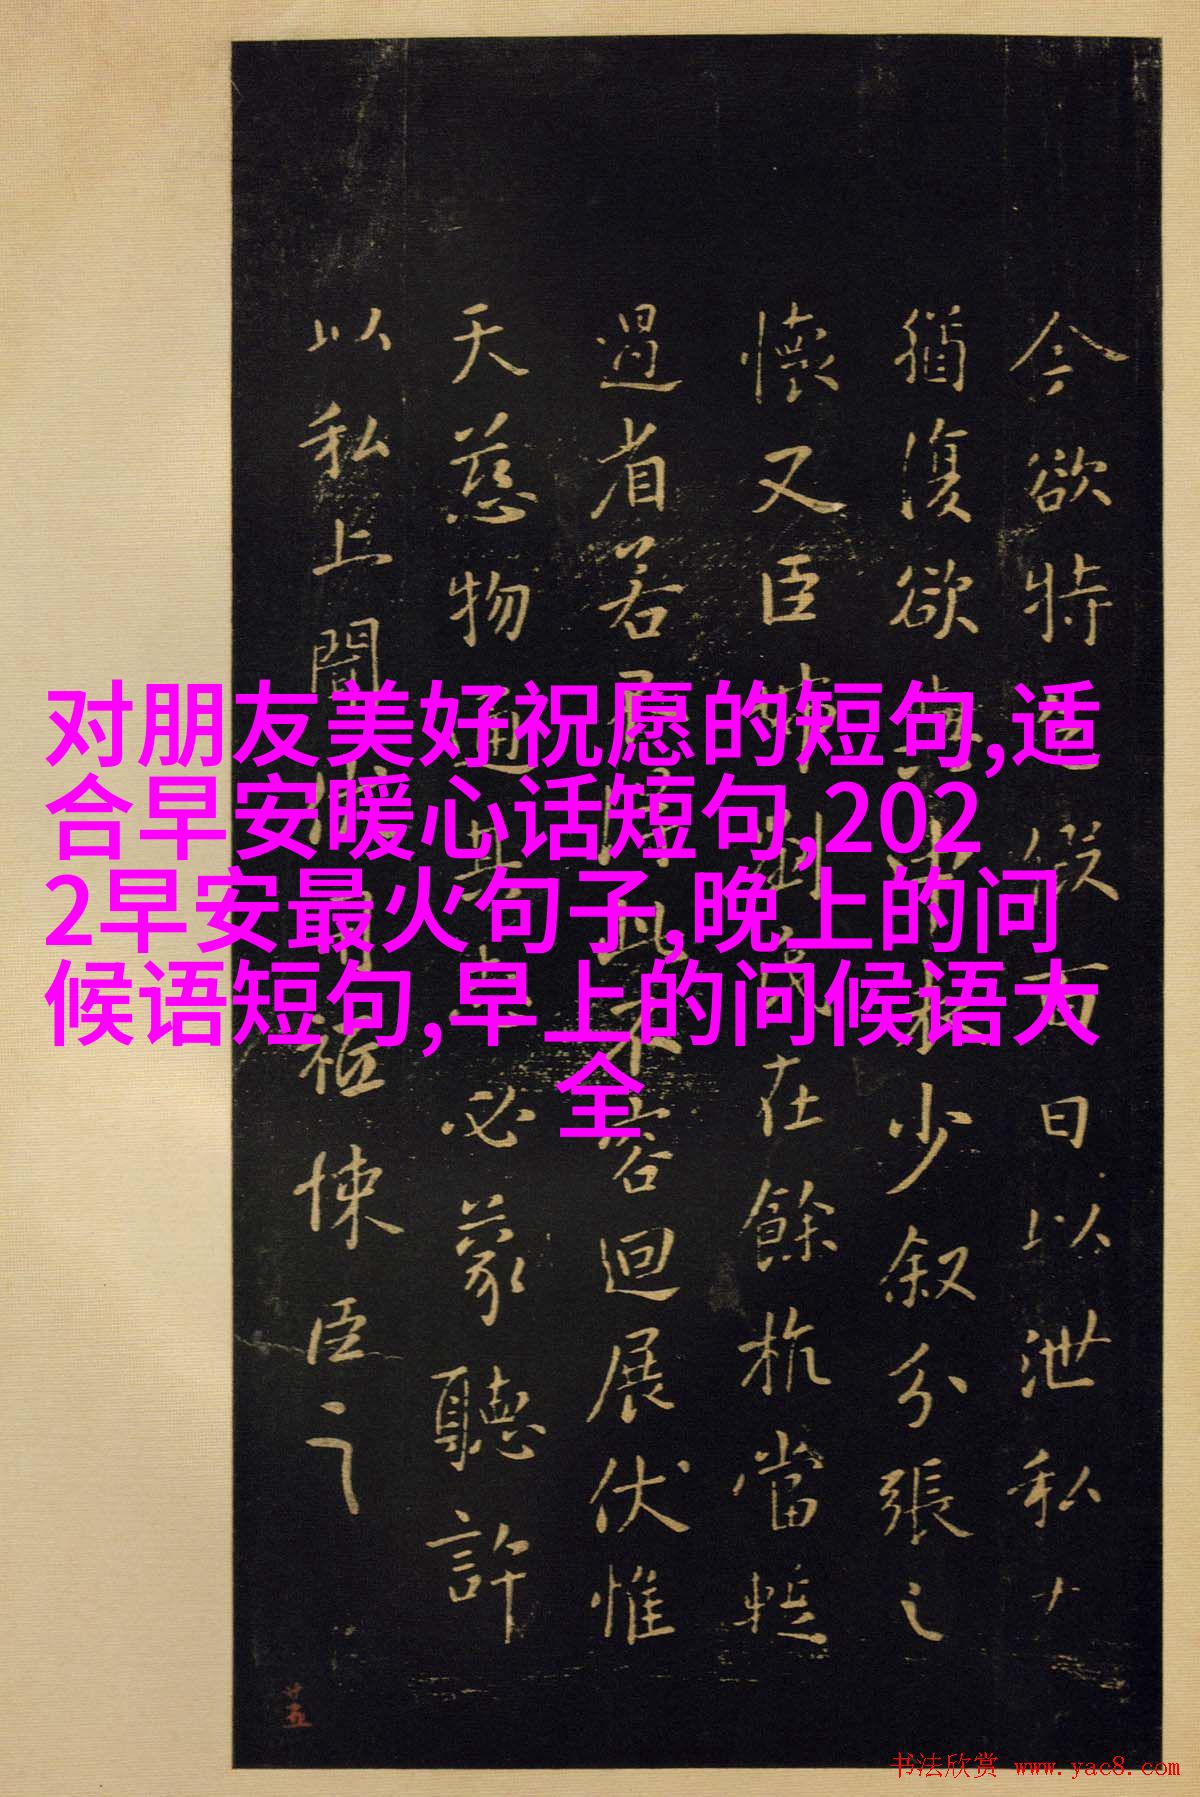 对朋友美好祝愿的短句,适
合早安暖心话短句,202
2早安最火句子,晚上的问
候语短句,早上的问候语大
全
今欲特假百日以泄私
猶復欲少叙分張之
懷又臣在餘杭當蹔
過省若容迴展伏惟
天慈物通必蒙聽許
以私上聞悚臣之
书法欣赏 www.yac8.com